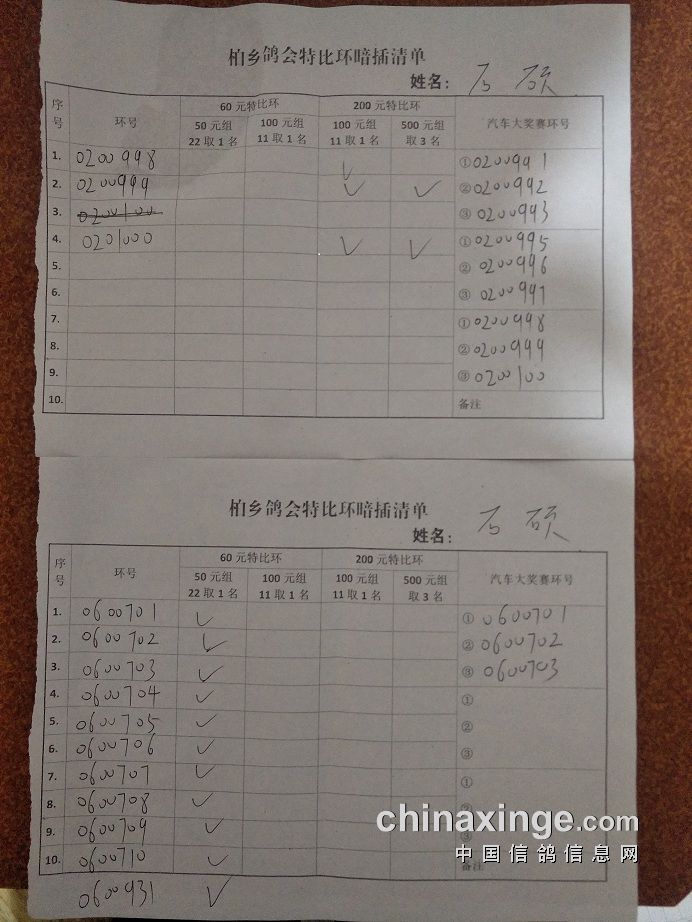 柏乡鸽会特比环暗插清单
姓名： 石硕
序号 环号 60元特比环 200元特比环 汽车大奖赛环号
50元组 22取1名 100元组 11取1名 100元组 11取1名 500元组 取3名
1. 0200998 ✓ ①0200991
2. 0200999 ✓ ✓ ②0200992
3. 0200100 ③0200993
4. 0201000 ✓ ✓ ①0200995
5. ②0200996
6. ③0200997
7. ①0200998
8. ②0200999
9. ③0200100
10. 备注
柏乡鸽会特比环暗插清单
姓名： 石硕
序号 环号 60元特比环 200元特比环 汽车大奖赛环号
50元组 22取1名 100元组 11取1名 100元组 11取1名 500元组 取3名
1. 0600701 ✓ ①0600701
2. 0600702 ✓ ②0600702
3. 0600703 ✓ ③0600703
4. 0600704 ✓ ①
5. 0600705 ✓ ②
6. 0600706 ✓ ③
7. 0600707 ✓ ①
8. 0600708 ✓ ②
9. 0600709 ✓ ③
10. 0600710 ✓ 备注
0600931 ✓
chinaxinge.com
中国信鸽信息网